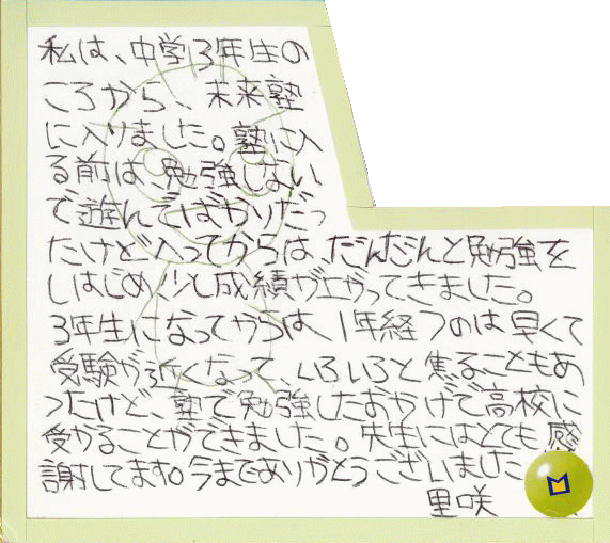 私は、中学3年生の
ころから、未来塾
に入りました。塾に入
る前は、勉強しない
で遊んでばかりだっ
たけど入ってからは、だんだんと勉強を
しはじめ少し成績が上がってきました。
3年生になってからは、1年経つのは早くて
受験が近くなって、いろいろと焦ることもあ
ったけど、塾で勉強したおかげで高校に
受かることができました。先生にはとても感
謝してます。今までありがとうございました
里咲